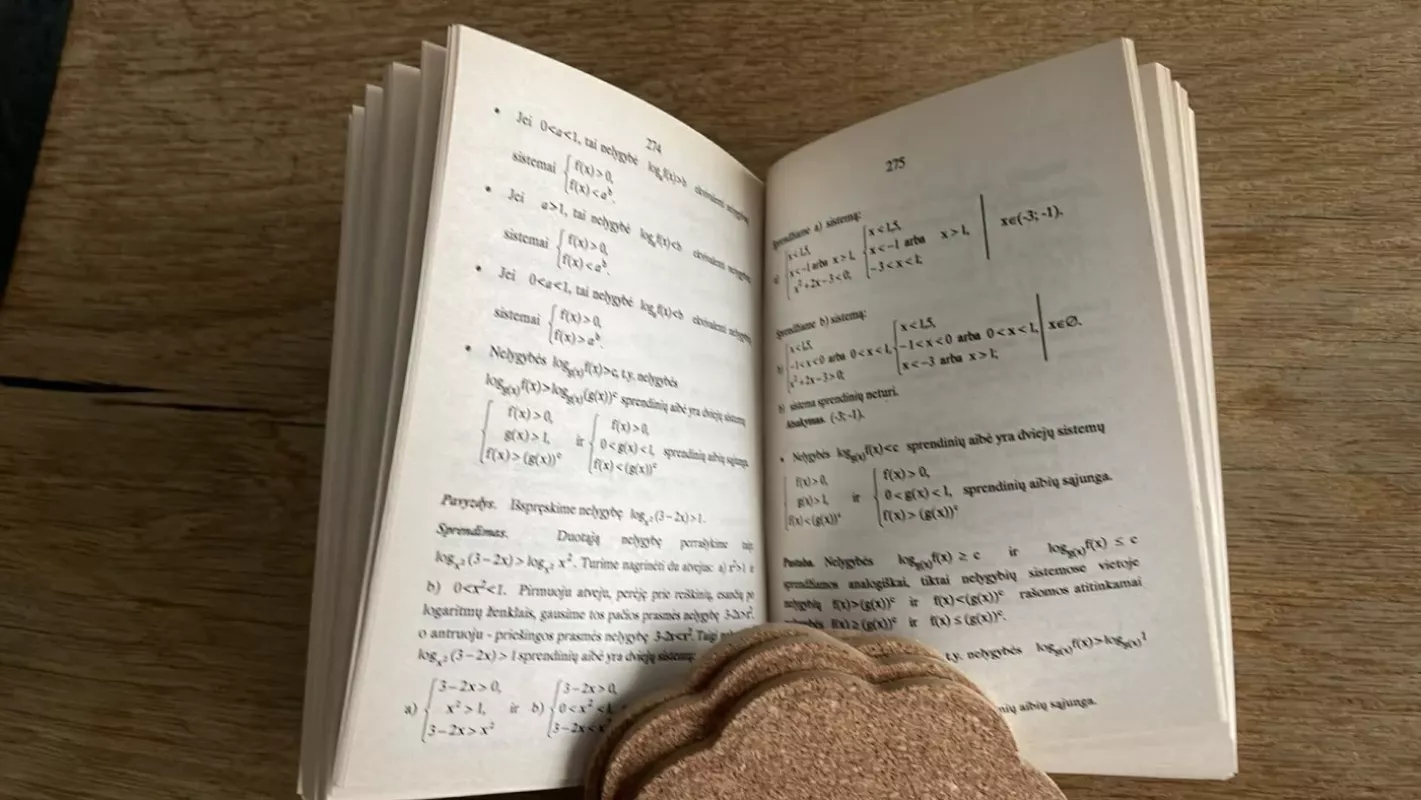 274
• Jei 0<a<1, tai nelygybė logₐf(x)>b ekvivalenti nelygybių
sistemai { f(x)>0, f(x)<aᵇ.
• Jei a>1, tai nelygybė logₐf(x)<b ekvivalenti nelygybių
sistemai { f(x)>0, f(x)<aᵇ.
• Jei 0<a<1, tai nelygybė logₐf(x)<b ekvivalenti nelygybių
sistemai { f(x)>0, f(x)>aᵇ.
• Nelygybės log_g(x) f(x)>c, t.y. nelygybės
log_g(x) f(x)>log_g(x) (g(x))ᶜ sprendinių aibė yra dviejų sistemų
{ f(x)>0, g(x)>1, f(x)>(g(x))ᶜ ir { f(x)>0, 0<g(x)<1, f(x)<(g(x))ᶜ sprendinių aibių sąjunga.
Pavyzdys. Išspręskime nelygybę log_x² (3−2x)>1.
Sprendimas. Duotąją nelygybę perrašykime taip:
log_x² (3−2x)>log_x² x². Turime nagrinėti du atvejus: a) x²>1 ir
b) 0<x²<1. Pirmuoju atveju, perėję prie reiškinių, esančių po
logaritmų ženklais, gausime tos pačios prasmės nelygybę 3-2x>x²,
o antruoju - priešingos prasmės nelygybę 3-2x<x². Taigi
log_x² (3−2x)>1 sprendinių aibė yra dviejų sistemų:
a) { 3−2x>0, x²>1, 3−2x>x² ir b) { 3−2x>0, 0<x²<1, 3−2x<x²
275
Sprendžiame a) sistemą:
a) { x<1,5, x<−1 arba x>1, x²+2x−3<0; { x<1,5, x<−1 arba x>1, −3<x<1; | x∈(-3; -1).
Sprendžiame b) sistemą:
b) { x<1,5, −1<x<0 arba 0<x<1, x²+2x−3>0; { x<1,5, −1<x<0 arba 0<x<1, x<−3 arba x>1; | x∈∅.
b) sistema sprendinių neturi.
Atsakymas. (-3; -1).
• Nelygybės log_g(x) f(x)<c sprendinių aibė yra dviejų sistemų
{ f(x)>0, g(x)>1, f(x)<(g(x))ᶜ ir { f(x)>0, 0<g(x)<1, f(x)>(g(x))ᶜ sprendinių aibių sąjunga.
Pastaba. Nelygybės log_g(x) f(x) ≥ c ir log_g(x) f(x) ≤ c
sprendžiamos analogiškai, tiktai nelygybių sistemose vietoje
nelygybių f(x)>(g(x))ᶜ ir f(x)<(g(x))ᶜ rašomos atitinkamai
nelygybės f(x)≥(g(x))ᶜ ir f(x)≤(g(x))ᶜ.
t.y. nelygybės log_g(x) f(x)>log_g(x) 1
aibių sąjunga.